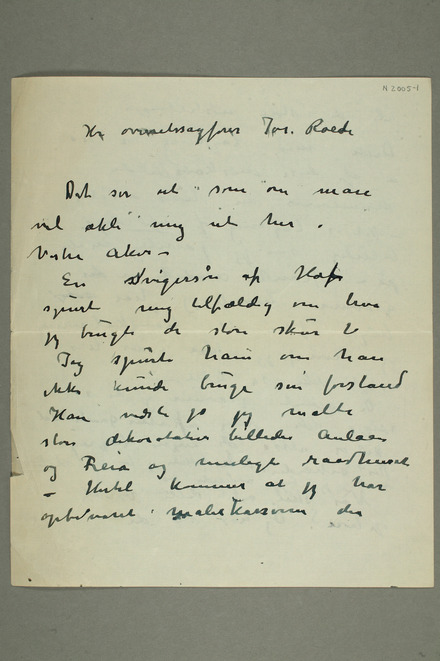 N 2005-1
Hr overretssagfører Jos. Roede
Det ser ut som om man
vil ække mig ut her i
Vestre Aker –
En Svigersøn af
spurte mig tilfældig om hva
jeg brugte de store skur t
Jeg spurte ham om han
ikke kunde bruge sin forstand
Han vidste jo jeg malte
store dekorative billeder Aulaen
og Freia og muligt raadhuset
– Hertil kommer at jeg har
opbevaret malerkasserne der